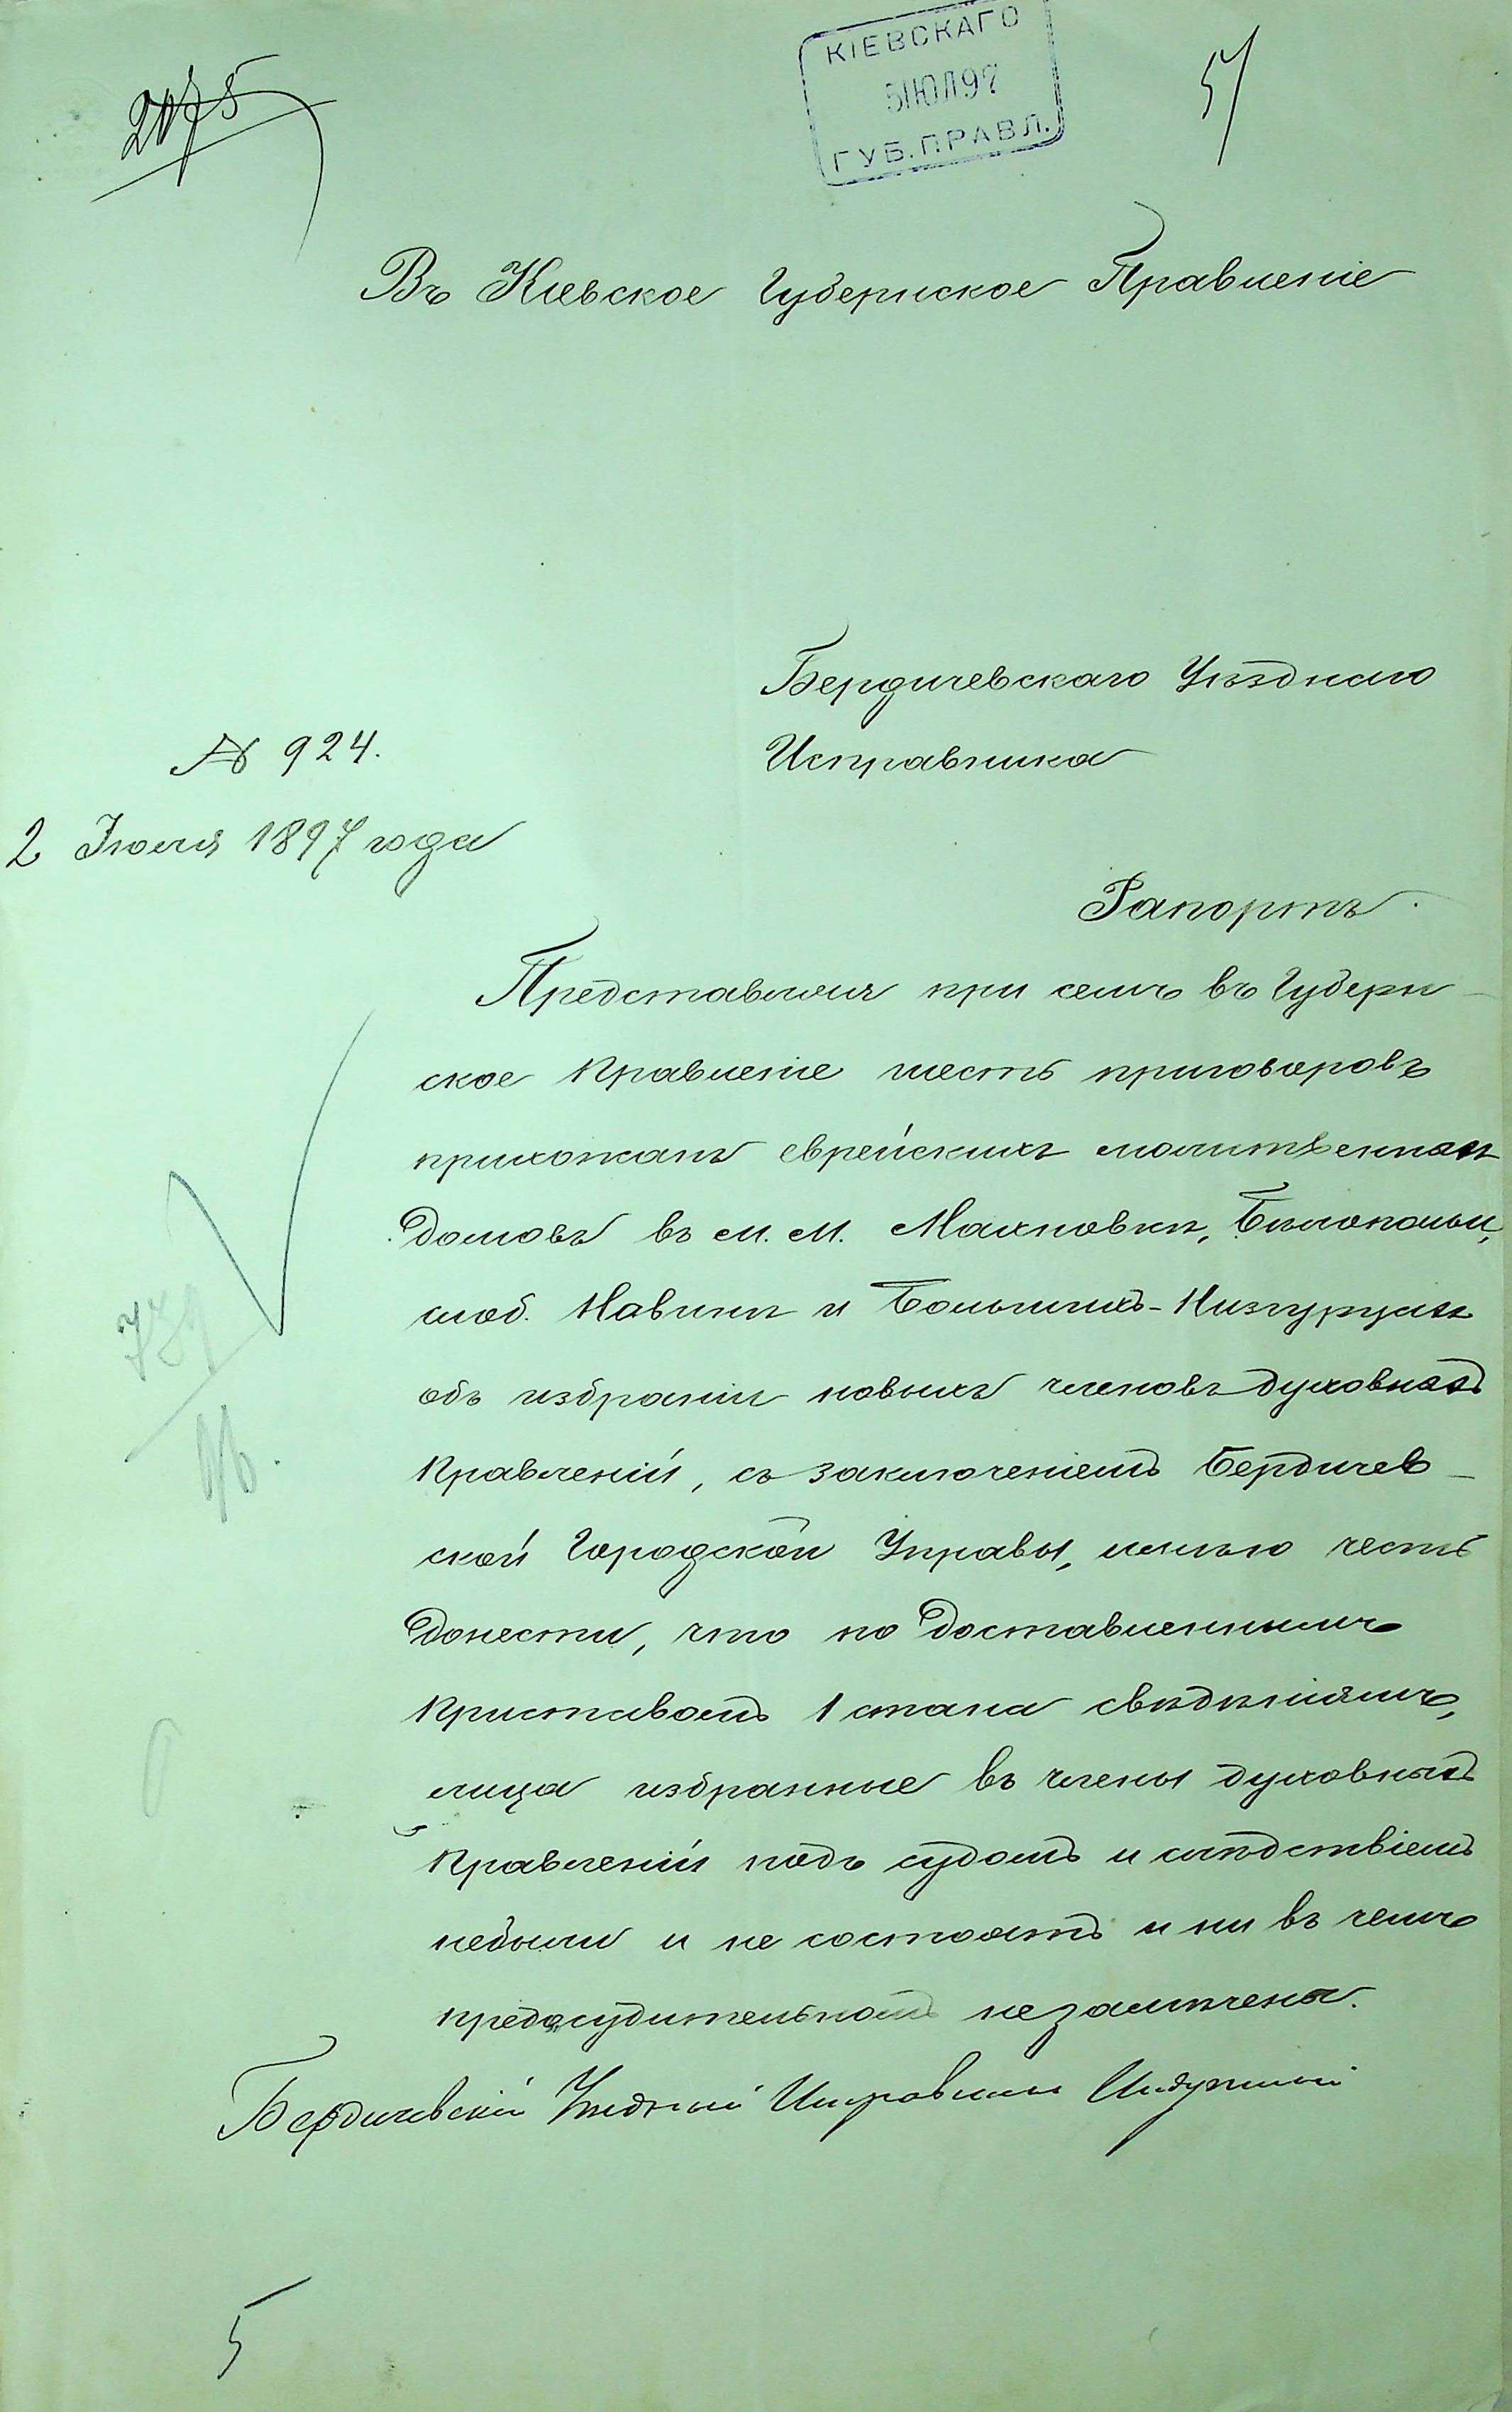 КІЕВСКАГО
5 ІЮЛ 97
ГУБ. ПРАВЛ.
2075
51
Въ Кіевское Губернское Правленіе
Бердичевскаго Уѣзднаго
Исправника
№ 924.
2 Іюля 1897 года
Рапортъ.
Представляя при семъ въ Губерн-
ское Правленіе шесть приговоровъ
прихожанъ еврейскихъ молитвенныхъ
домовъ въ м. м. Махновкѣ, Бѣлопольи,
слоб. и Большихъ-Низгурцахъ
объ избраніи новыхъ членовъ духовныхъ
Правленій, съ заключеніемъ Бердичев-
ской Городской Управы, имѣю честь
донести, что по доставленнымъ
Приставомъ 1 стана свѣдѣніямъ,
лица избранные въ члены духовныхъ
Правленій подъ судомъ и слѣдствіемъ
небыли и не состоятъ и ни въ чемъ
предосудительномъ незамѣчены.
Бердичевскій Уѣздный Исправникъ
5